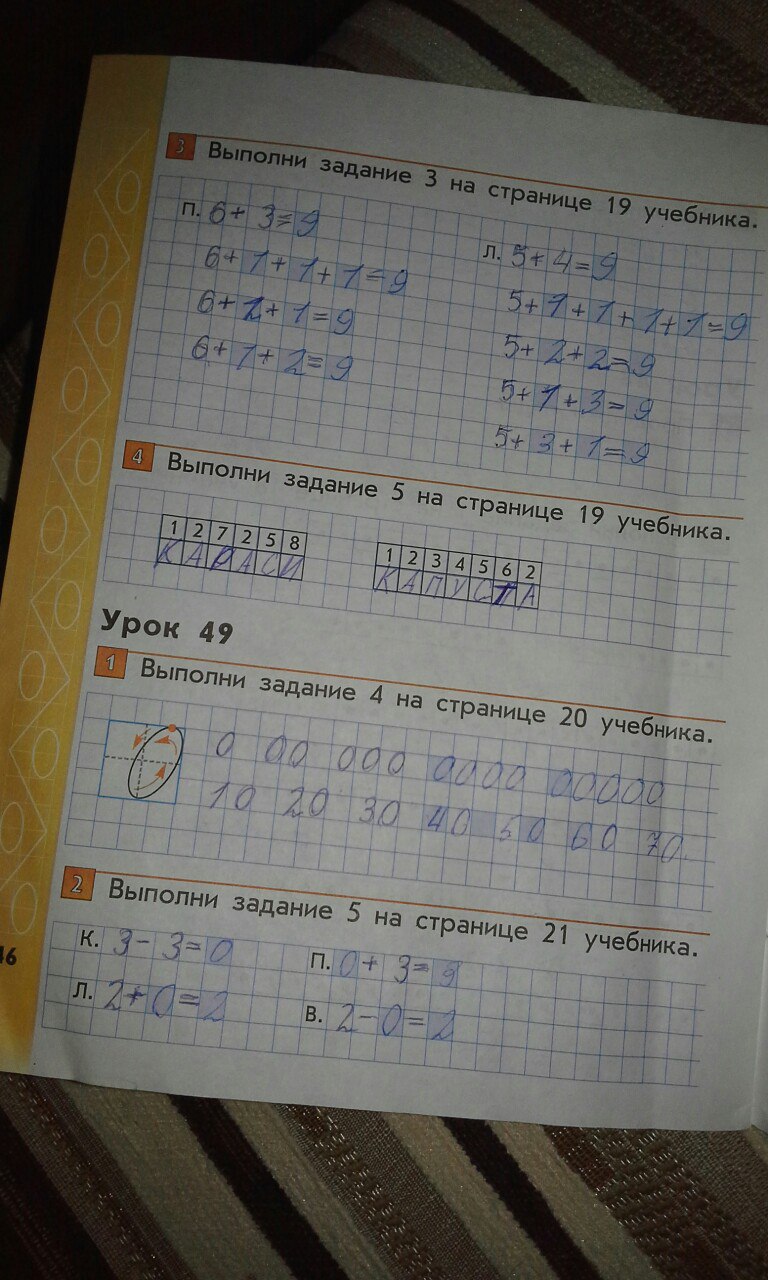 3 Выполни задание 3 на странице 19 учебника.
П. 6+3=9
6+1+1+1=9
6+2+1=9
6+1+2=9
Л. 5+4=9
5+1+1+1+1=9
5+2+2=9
5+1+3=9
5+3+1=9
4 Выполни задание 5 на странице 19 учебника.
1 2 7 2 5 8
К А Р А С И
1 2 3 4 5 6 2
К А П У С Т А
Урок 49
1 Выполни задание 4 на странице 20 учебника.
0 00 000 0000 00000
10 20 30 40 50 60 70
2 Выполни задание 5 на странице 21 учебника.
К. 3-3=0
П. 0+3=9
Л. 2+0=2
В. 2-0=2